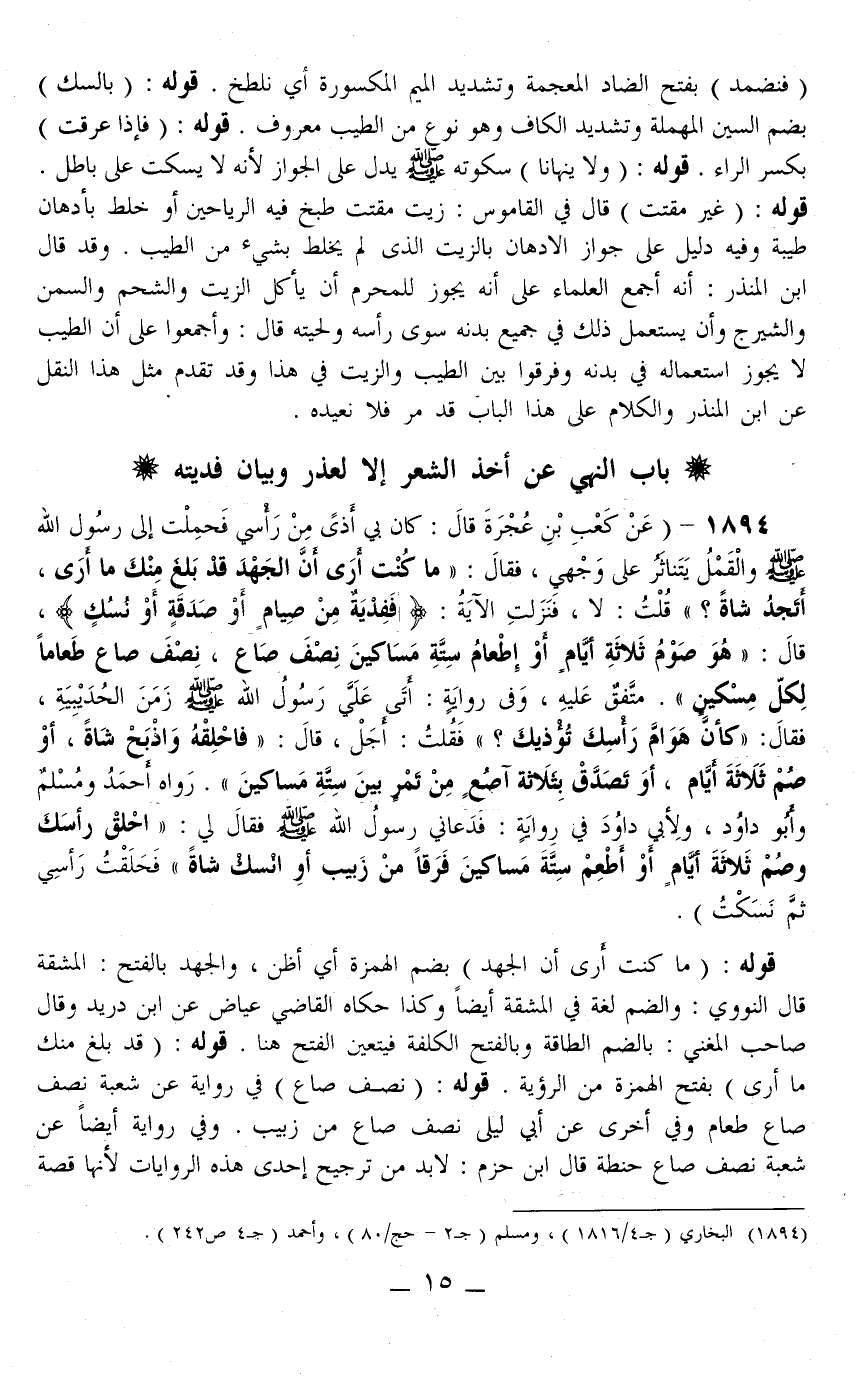 ( فنضمد ) بفتح الضاد المعجمة وتشديد الميم المكسورة أي نلطخ . قوله : ( بالسك )
بضم السين المهملة وتشديد الكاف وهو نوع من الطيب معروف . قوله : ( فإذا عرقت )
بكسر الراء . قوله : ( ولا ينهانا ) سكوته ﷺ يدل على الجواز لأنه لا يسكت على باطل .
قوله : ( غير مقتت ) قال في القاموس : زيت مقتت طبخ فيه الرياحين أو خلط بأدهان
طيبة وفيه دليل على جواز الادهان بالزيت الذى لم يخلط بشيء من الطيب . وقد قال
ابن المنذر : أنه أجمع العلماء على أنه يجوز للمحرم أن يأكل الزيت والشحم والسمن
والشيرج وأن يستعمل ذلك في جميع بدنه سوى رأسه ولحيته قال : وأجمعوا على أن الطيب
لا يجوز استعماله في بدنه وفرقوا بين الطيب والزيت في هذا وقد تقدم مثل هذا النقل
عن ابن المنذر والكلام على هذا الباب قد مر فلا نعيده .
باب النهي عن أخذ الشعر إلا لعذر وبيان فديته
١٨٩٤ – ( عَنْ كَعْبِ بْنِ عُجْرَةَ قالَ : كان بي أَذىً مِنْ رَأْسي فَحمِلْت إلى رسُول الله
ﷺ والْقَمْلُ يَتَناثَرُ على وَجْهي ، فقالَ : « ما كُنْت أرَى أَنَّ الجَهْدَ قدْ بَلغَ مِنْكَ ما أرَى ،
أتجدُ شاةً ؟ » قُلْتُ : لا ، فَنَزلتِ الآيَةُ : ﴿ فَفِدْيَةٌ مِنْ صِيامٍ أَوْ صَدَقَةٍ أوْ نُسُكٍ ﴾ ،
قالَ : « هُوَ صَوْمُ ثَلاثَةِ أيَّامٍ أوْ إِطْعامُ ستَّةِ مَسَاكينَ نِصْفَ صَاعٍ ، نِصْفَ صاع طَعاماً
لِكلّ مِسْكينٍ » . متَّفقٌ عَليهِ ، وَفى روايَةٍ : أَتَى عَلَيَّ رَسُولُ الله ﷺ زَمَنَ الحُدَيْبِيَةِ ،
فقالَ: «كأنَّ هَوَامَّ رَأْسِكَ تُؤْذيكَ ؟ » فَقُلتُ : أجَلْ ، قالَ : « فاحْلِقْهُ وَاذْبَحْ شَاةً ، أوْ
صُمْ ثَلَاثَةَ أيَّامٍ ، أوَ تَصَدَّقْ بِثَلاثة آصُعٍ مِنْ تَمْرٍ بينَ ستَّةِ مَساكينَ » . رَواه أحمَدُ ومُسْلمٌ
وأبُو داوُد ، ولِأبي داوُدَ في روايَةٍ : فَدَعاني رسولُ الله ﷺ فقالَ لي : « احْلقْ رأسَكَ
وصُمْ ثَلاثَةَ أيَّامٍ أوْ أَطْعِمْ سِتَّةَ مَساكينَ فَرَقاً منْ زَبيب أوِ انْسكْ شاةً » فَحَلَقْتُ رَأسِي
ثمَّ نَسَكْتُ ) .
قوله : ( ما كنت أُرى أن الجهد ) بضم الهمزة أي أظن ، والجهد بالفتح : المشقة
قال النووي : والضم لغة في المشقة أيضاً وكذا حكاه القاضي عياض عن ابن دريد وقال
صاحب المغني : بالضم الطاقة وبالفتح الكلفة فيتعين الفتح هنا . قوله : ( قد بلغ منك
ما أرى ) بفتح الهمزة من الرؤية . قوله : ( نصف صاع ) في رواية عن شعبة نصف
صاع طعام وفي أخرى عن أبي ليلى نصف صاع من زبيب . وفي رواية أيضاً عن
شعبة نصف صاع حنطة قال ابن حزم : لابد من ترجيح إحدى هذه الروايات لأنها قصة
(١٨٩٤) البخاري ( جـ٤/١٨١٦ ) ، ومسلم ( جـ٢ – حج/٨٠ ) ، وأحمد ( جـ٤ ص٢٤٢ ) .
— ١٥ —